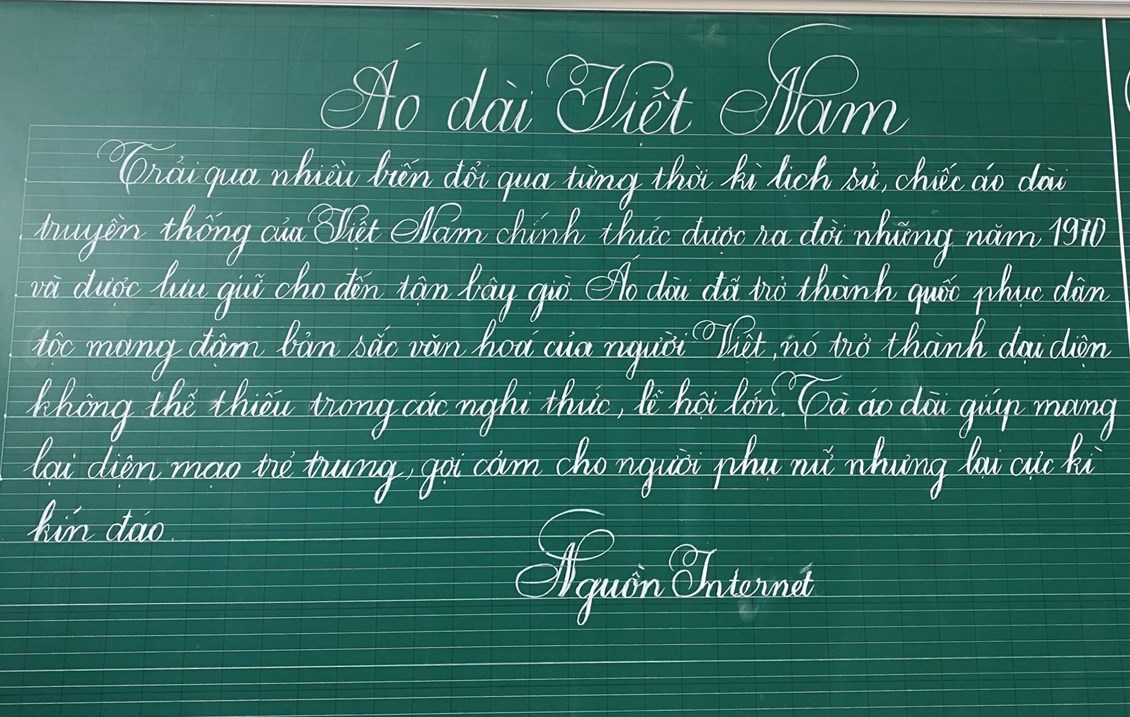 Áo dài Việt Nam
Trải qua nhiều biến đổi qua từng thời kì lịch sử, chiếc áo dài
truyền thống của Việt Nam chính thức được ra đời những năm 1970
và được lưu giữ cho đến tận bây giờ. Áo dài đã trở thành quốc phục dân
tộc mang đậm bản sắc văn hoá của người Việt, nó trở thành đại diện
không thể thiếu trong các nghi thức, lễ hội lớn. Tà áo dài giúp mang
lại diện mạo trẻ trung, gợi cảm cho người phụ nữ nhưng lại cực kì
kín đáo.
Nguồn Internet